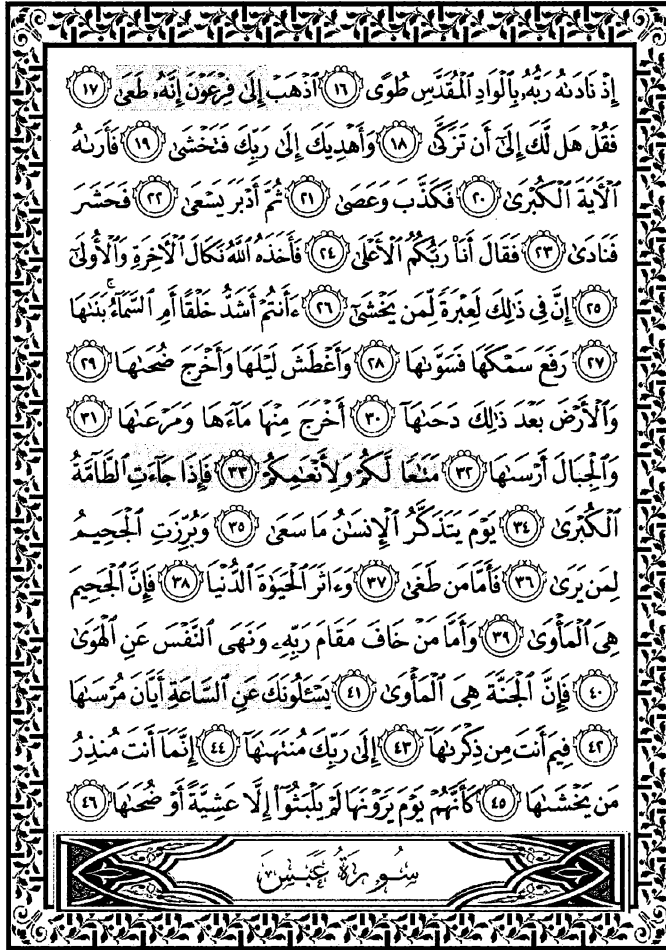 إِذْ نَادَىٰهُ رَبُّهُۥ بِٱلْوَادِ ٱلْمُقَدَّسِ طُوًى ١٦ ٱذْهَبْ إِلَىٰ فِرْعَوْنَ إِنَّهُۥ طَغَىٰ ١٧
فَقُلْ هَل لَّكَ إِلَىٰٓ أَن تَزَكَّىٰ ١٨ وَأَهْدِيَكَ إِلَىٰ رَبِّكَ فَتَخْشَىٰ ١٩ فَأَرَىٰهُ
ٱلْـَٔايَةَ ٱلْكُبْرَىٰ ٢٠ فَكَذَّبَ وَعَصَىٰ ٢١ ثُمَّ أَدْبَرَ يَسْعَىٰ ٢٢ فَحَشَرَ
فَنَادَىٰ ٢٣ فَقَالَ أَنَا۠ رَبُّكُمُ ٱلْأَعْلَىٰ ٢٤ فَأَخَذَهُ ٱللَّهُ نَكَالَ ٱلْـَٔاخِرَةِ وَٱلْأُولَىٰٓ
٢٥ إِنَّ فِى ذَٰلِكَ لَعِبْرَةً لِّمَن يَخْشَىٰٓ ٢٦ ءَأَنتُمْ أَشَدُّ خَلْقًا أَمِ ٱلسَّمَآءُ ۚ بَنَىٰهَا
٢٧ رَفَعَ سَمْكَهَا فَسَوَّىٰهَا ٢٨ وَأَغْطَشَ لَيْلَهَا وَأَخْرَجَ ضُحَىٰهَا ٢٩
وَٱلْأَرْضَ بَعْدَ ذَٰلِكَ دَحَىٰهَآ ٣٠ أَخْرَجَ مِنْهَا مَآءَهَا وَمَرْعَىٰهَا ٣١
وَٱلْجِبَالَ أَرْسَىٰهَا ٣٢ مَتَٰعًا لَّكُمْ وَلِأَنْعَٰمِكُمْ ٣٣ فَإِذَا جَآءَتِ ٱلطَّآمَّةُ
ٱلْكُبْرَىٰ ٣٤ يَوْمَ يَتَذَكَّرُ ٱلْإِنسَٰنُ مَا سَعَىٰ ٣٥ وَبُرِّزَتِ ٱلْجَحِيمُ
لِمَن يَرَىٰ ٣٦ فَأَمَّا مَن طَغَىٰ ٣٧ وَءَاثَرَ ٱلْحَيَوٰةَ ٱلدُّنْيَا ٣٨ فَإِنَّ ٱلْجَحِيمَ
هِىَ ٱلْمَأْوَىٰ ٣٩ وَأَمَّا مَنْ خَافَ مَقَامَ رَبِّهِۦ وَنَهَى ٱلنَّفْسَ عَنِ ٱلْهَوَىٰ
٤٠ فَإِنَّ ٱلْجَنَّةَ هِىَ ٱلْمَأْوَىٰ ٤١ يَسْـَٔلُونَكَ عَنِ ٱلسَّاعَةِ أَيَّانَ مُرْسَىٰهَا
٤٢ فِيمَ أَنتَ مِن ذِكْرَىٰهَآ ٤٣ إِلَىٰ رَبِّكَ مُنتَهَىٰهَآ ٤٤ إِنَّمَآ أَنتَ مُنذِرُ
مَن يَخْشَىٰهَا ٤٥ كَأَنَّهُمْ يَوْمَ يَرَوْنَهَا لَمْ يَلْبَثُوٓا۟ إِلَّا عَشِيَّةً أَوْ ضُحَىٰهَا ٤٦
سُورَةُ عَبَسَ